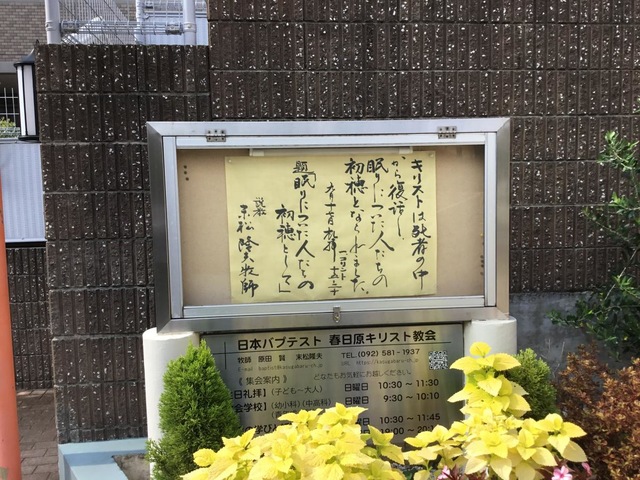 キリストは死者の中
から復活し、
眠りについた人たちの
初穂となられました。
一コリント十五・二十
九月十七日礼拝
題「眠りについた人たちの
初穂として」
説教
末松隆夫牧師
日本バプテスト 春日原キリスト教会
牧師 原田 賢 末松隆夫
TEL.(092) 581-1937
どなたもお気軽にお越しください
《 集会案内 》
日礼拝】(子ども～大人) 日曜日 10:30 ～ 11:30
会学校】(幼小科)(中高科) 日曜日 9:30 ～ 10:10
日曜日 10:30 ～ 11:45
の学び